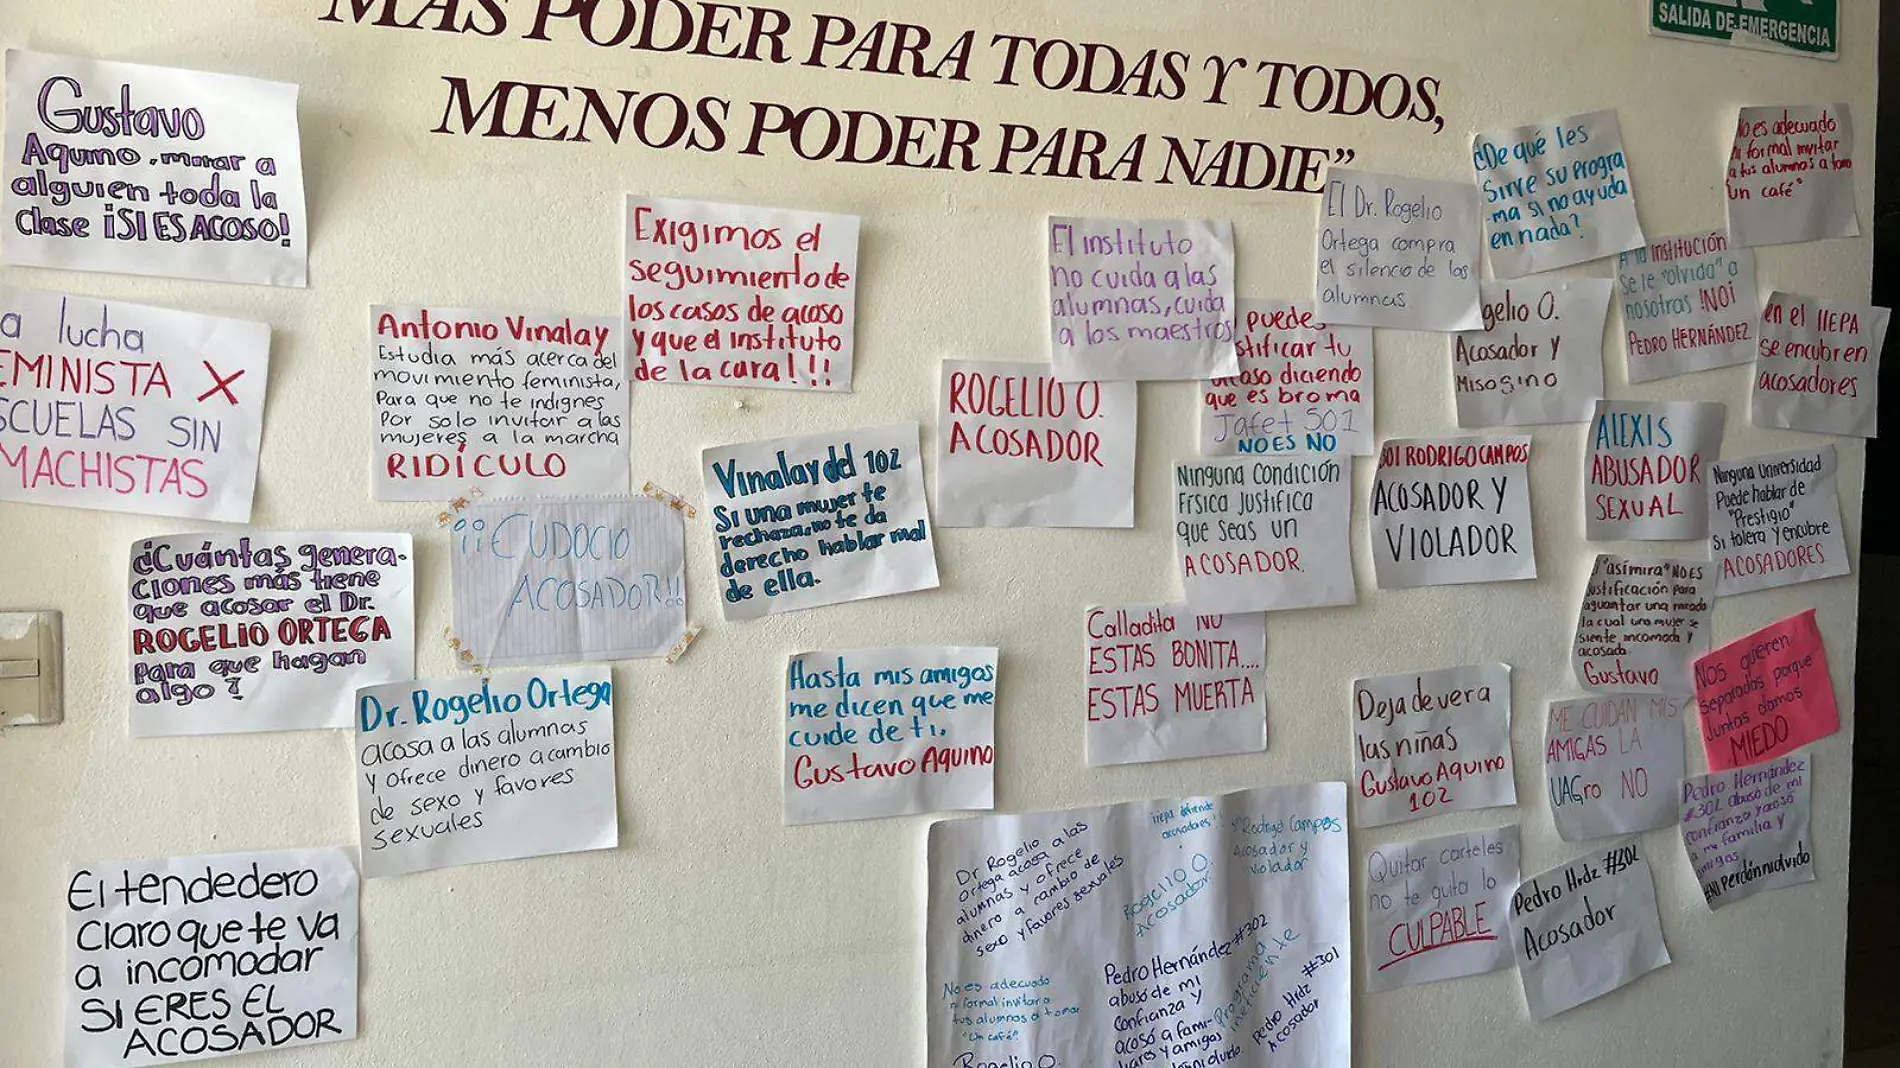 MÁS PODER PARA TODAS Y TODOS,
MENOS PODER PARA NADIE”
SALIDA DE EMERGENCIA
Gustavo
Aquino, mirar a
alguien toda la
clase ¡SI ES ACOSO!
a lucha
EMINISTA X
SCUELAS SIN
MACHISTAS
Antonio Vinalay
Estudia más acerca del
movimiento feminista,
Para que no te indignes
Por solo invitar a las
mujeres a la marcha
RIDÍCULO
Exigimos el
seguimiento de
los casos de acoso
y que el instituto
de la cara!!!
El instituto
no cuida a las
alumnas, cuida
a los maestros
El Dr. Rogelio
Ortega compra
el silencio de las
alumnas
¿De qué les
sirve su progra
-ma si no ayuda
en nada?
No es adecuado
ni formal invitar
a tus alumnos a tomar
un café"
A la INSTITUCIÓN
Se le "olvida" a
nosotras !NO¡
PEDRO HERNÁNDEZ
en el IIEPA
se encubren
acosadores
puedes
stificar tu
acoso diciendo
que es broma
Jafet 501
NO ES NO
gelio O.
Acosador y
Misogino
ROGELIO O.
ACOSADOR
Vinalay del 102
Si una mujer te
rechaza, no te da
derecho hablar mal
de ella.
Ninguna condición
Física justifica
que seas un
ACOSADOR.
301 RODRIGO CAMPOS
ACOSADOR Y
VIOLADOR
ALEXIS
ABUSADOR
SEXUAL
Ninguna Universidad
Puede hablar de
"Prestigio"
Si tolera y encubre
ACOSADORES
¿Cuántas genera-
ciones más tiene
que acosar el Dr.
ROGELIO ORTEGA
para que hagan
algo?
¡¡EUDOCIO
ACOSADOR!!
Dr. Rogelio Ortega
acosa a las alumnas
y ofrece dinero a cambio
de sexo y favores
sexuales
Hasta mis amigos
me dicen que me
cuide de ti.
Gustavo Aquino
Calladita NO
ESTAS BONITA....
ESTAS MUERTA
"asimira" NO ES
justificación para
aguantar una mirada
la cual una mujer se
siente incomoda y
acosada.
Gustavo
Nos quieren
separadas porque
Juntas damos
MIEDO
Deja de ver a
las niñas
Gustavo Aquino
102
ME CUIDAN MIS
AMIGAS LA
UAGro NO
Pedro Hernández
#302 abusó de mi
confianza y acosó
a mi familia y
amigas
#NiPerdónniolvido
El tendedero
Claro que te va
a incomodar
SI ERES EL
ACOSADOR
Quitar carteles
no te quita lo
CULPABLE
Pedro Hrdz #302
Acosador
Dr Rogelio
Ortega acosa a las
alumnas y ofrece
dinero a cambio de
sexo y favores sexuales
iiepa defiende
acosadores!!
Rodrigo Campos
Acosador y
violador
Rogelio O.
Acosador.
No es adecuado
ni formal invitar a
tus alumnos a tomar
"Un café"
Pedro Hernández #302
abusó de mi
confianza y
acosó a fami-
liares y amigas
Programa
ineficiente
Pedro Hrdz #301
Acosador
Rogelio O.